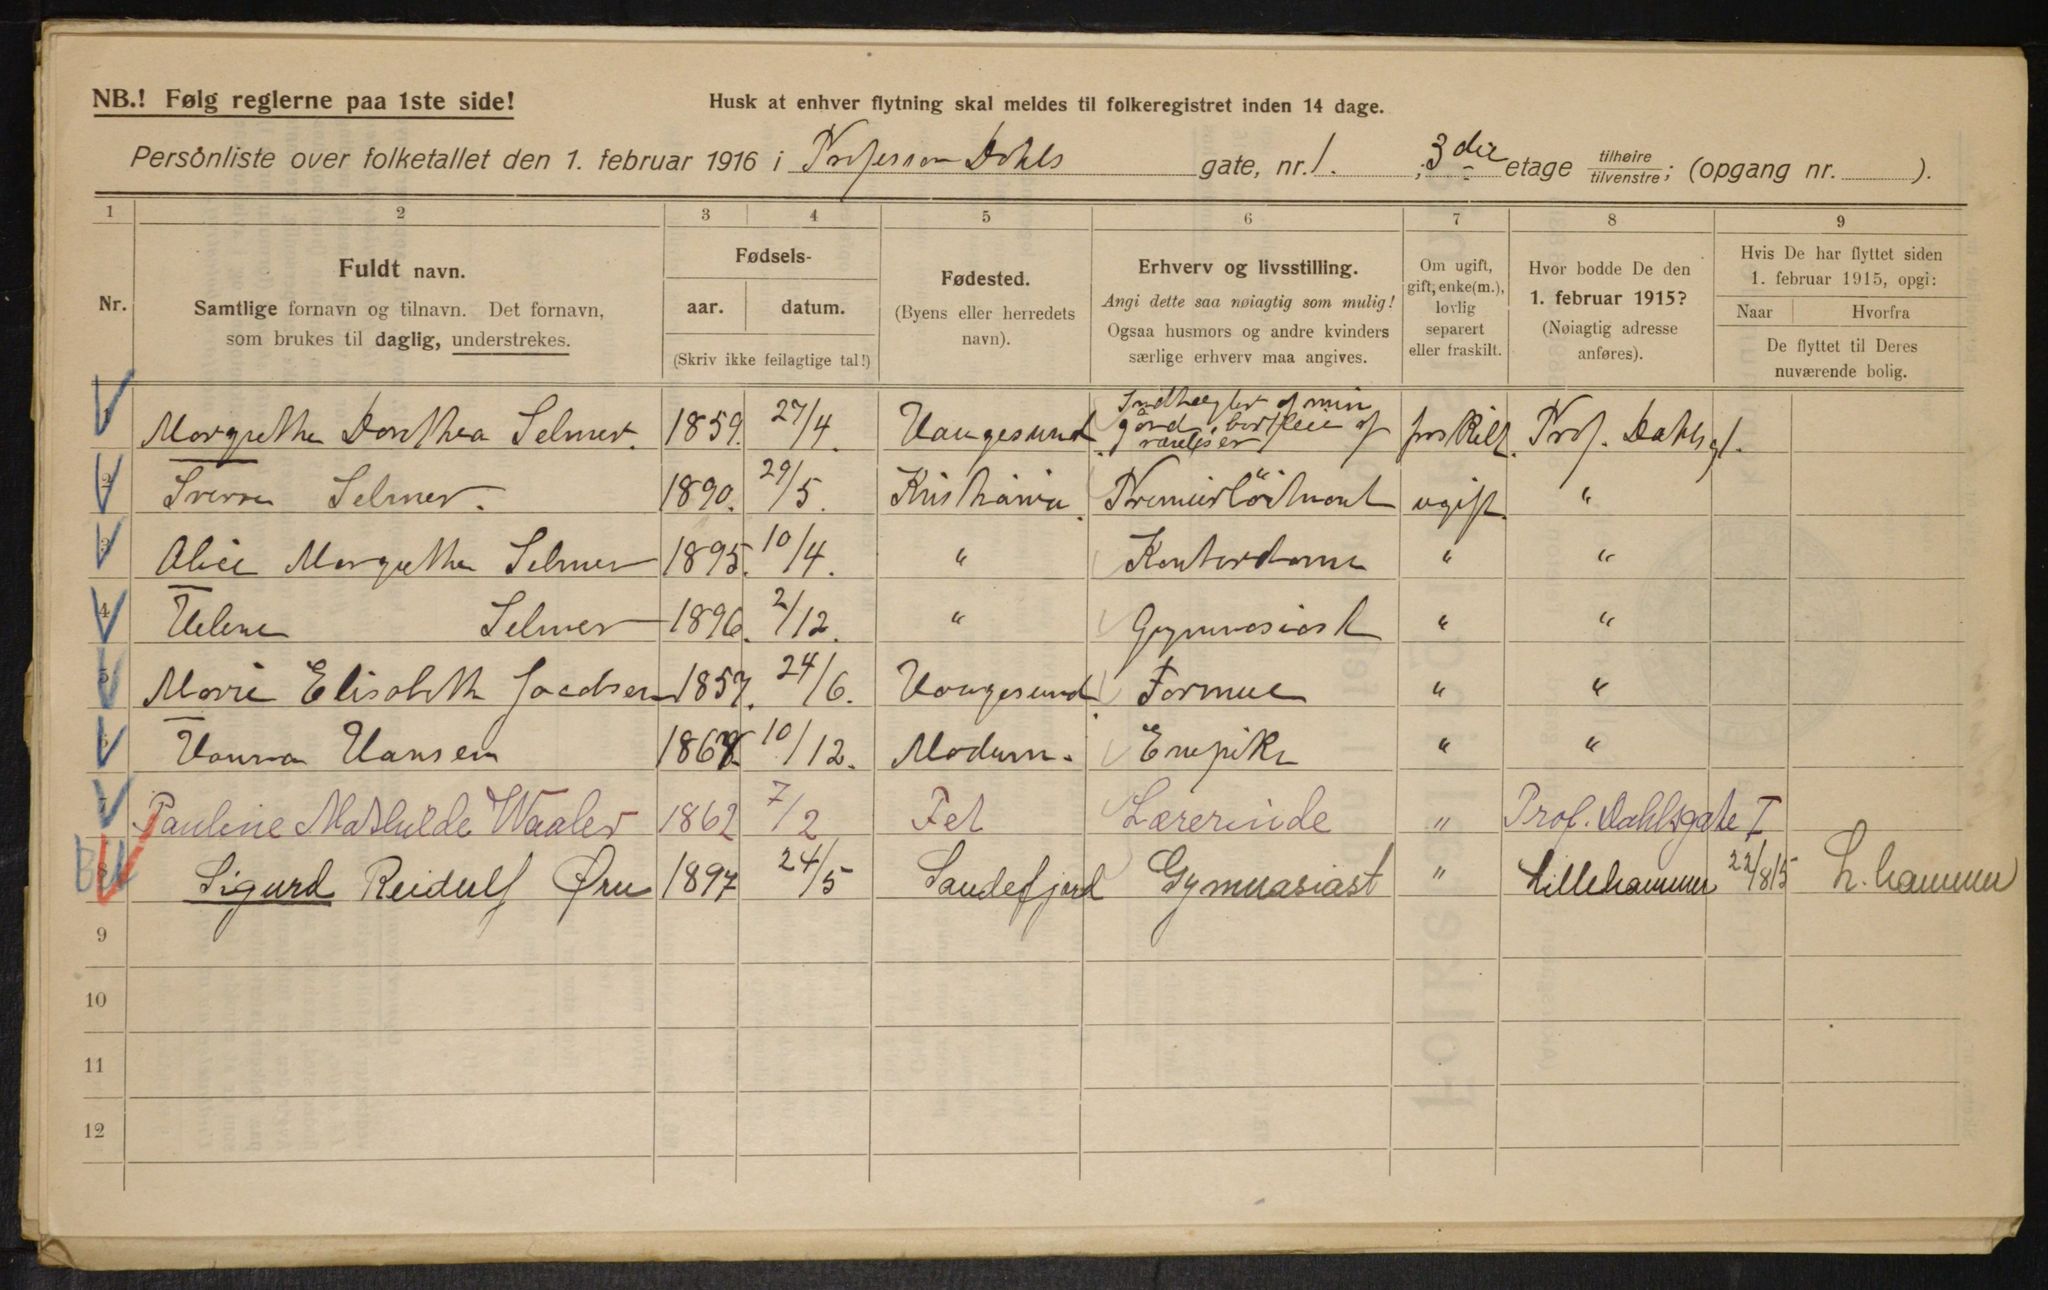 NB.! Følg reglerne paa 1ste side!
Husk at enhver flytning skal meldes til folkeregistret inden 14 dage.
Personliste over folketallet den 1. februar 1916 i Professor Dahls gate, nr. 1. ; 3die etage tilhøire / tilvenstre ; (opgang nr. ).
1 2 3 4 5 6 7 8 9
Nr.
Fuldt navn.
Samtlige fornavn og tilnavn. Det fornavn,
som brukes til daglig, understrekes.
Fødsels-
aar. datum.
(Skriv ikke feilagtige tal!)
Fødested.
(Byens eller herredets
navn).
Erhverv og livsstilling.
Angi dette saa nøiagtig som mulig!
Ogsaa husmors og andre kvinders
særlige erhverv maa angives.
Om ugift,
gift, enke(m.),
lovlig
separert
eller fraskilt.
Hvor bodde De den
1. februar 1915?
(Nøiagtig adresse
anføres).
Hvis De har flyttet siden
1. februar 1915, opgi:
Naar Hvorfra
De flyttet til Deres
nuværende bolig.
Margrethe Dorothea Selmer. 1859. 27/4. Haugesund Indtægter af min gård, bortleie af værelser fraskilt. Prof. Dahlsgt.
2 Sverre Selmer. 1890. 29/5. Kristiania. Premierløitnant ugift. "
3 Alice Margrethe Selmer 1895. 10/4. " Kontordame " "
4 Helene Selmer 1896. 2/12. " Gymnasiast " "
5 Marie Elisabeth Jacobsen 1857. 24/6. Haugesund. Formue " "
Hanna Hansen 1868. 10/12. Modum. Enepike " "
7 Pauline Mathilde Waaler 1862 7/2 Fet Lærerinde " Prof. Dahlsgate I
8 Sigurd Reidulf Øru 1897 24/5 Sandefjord Gymnasiast " Lillehammer 22/815 L. hammer
9
10
11
12